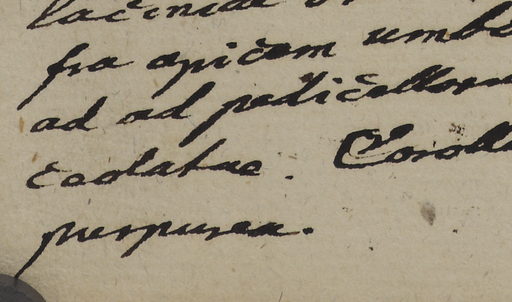 laciniae
fra apicem umb
ad ad pedicellor
ceolatae. Coroll
purpurea.